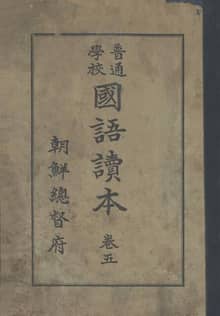 普通學校
國語讀本 卷五
朝鮮總督府